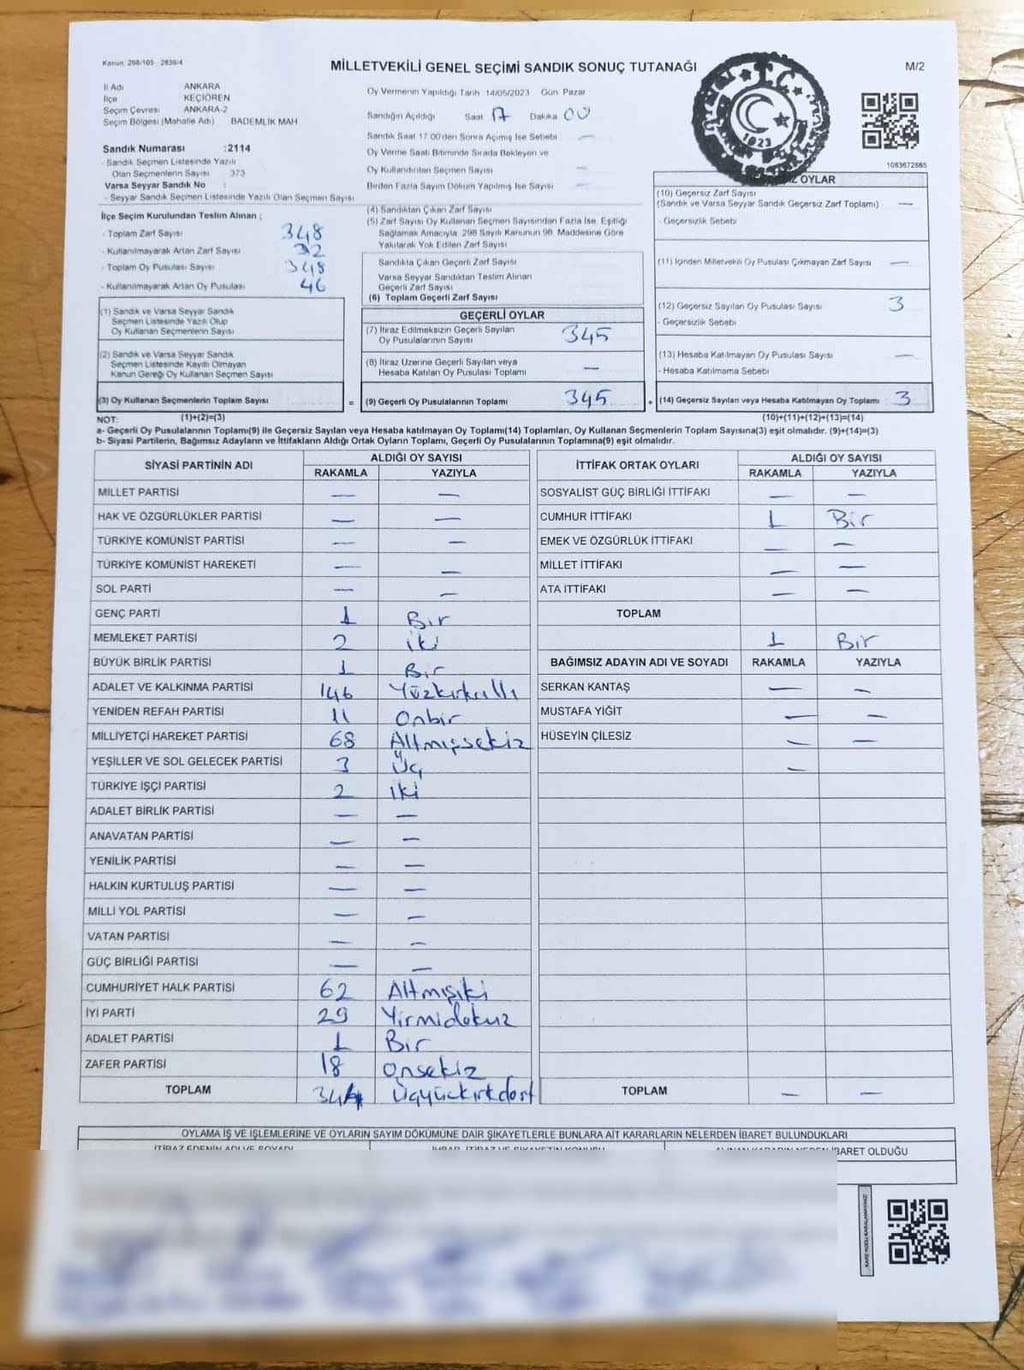 Kanun: 298/105 - 2839/4
MİLLETVEKİLİ GENEL SEÇİMİ SANDIK SONUÇ TUTANAĞI
M/2
İl Adı ANKARA
İlçe KEÇİÖREN
Seçim Çevresi ANKARA-2
Seçim Bölgesi (Mahalle Adı) BADEMLİK MAH
Oy Vermenin Yapıldığı Tarih 14/05/2023 Gün Pazar
Sandığın Açıldığı Saat 17 Dakika 00
Sandık Saat 17:00'den Sonra Açılmış İse Sebebi —
Oy Verme Saati Bitiminde Sırada Bekleyen ve
Oy Kullandırılan Seçmen Sayısı —
Birden Fazla Sayım Döküm Yapılmış İse Sayısı —
T.C.
1923
1083672885
Sandık Numarası :2114
- Sandık Seçmen Listesinde Yazılı
Olan Seçmenlerin Sayısı 373
Varsa Seyyar Sandık No :
- Seyyar Sandık Seçmen Listesinde Yazılı Olan Seçmen Sayısı
İlçe Seçim Kurulundan Teslim Alınan ;
- Toplam Zarf Sayısı 348
- Kullanılmayarak Artan Zarf Sayısı 32
- Toplam Oy Pusulası Sayısı 348
- Kullanılmayarak Artan Oy Pusulası 46
(1) Sandık ve Varsa Seyyar Sandık
Seçmen Listesinde Yazılı Olup
Oy Kullanan Seçmenlerin Sayısı
(2) Sandık ve Varsa Seyyar Sandık
Seçmen Listesinde Kayıtlı Olmayan
Kanun Gereği Oy Kullanan Seçmen Sayısı
(3) Oy Kullanan Seçmenlerin Toplam Sayısı
(1)+(2)=(3)
(4) Sandıktan Çıkan Zarf Sayısı
(5) Zarf Sayısı Oy Kullanan Seçmen Sayısından Fazla İse, Eşitliği
Sağlamak Amacıyla, 298 Sayılı Kanunun 98. Maddesine Göre
Yakılarak Yok Edilen Zarf Sayısı
Sandıkta Çıkan Geçerli Zarf Sayısı
Varsa Seyyar Sandıktan Teslim Alınan
Geçerli Zarf Sayısı
(6) Toplam Geçerli Zarf Sayısı
GEÇERLİ OYLAR
(7) İtiraz Edilmeksizin Geçerli Sayılan
Oy Pusulalarının Sayısı 345
(8) İtiraz Üzerine Geçerli Sayılan veya
Hesaba Katılan Oy Pusulası Toplamı —
= (9) Geçerli Oy Pusulalarının Toplamı 345 +
OYLAR
(10) Geçersiz Zarf Sayısı
(Sandık ve Varsa Seyyar Sandık Geçersiz Zarf Toplamı) —
- Geçersizlik Sebebi
(11) İçinden Milletvekili Oy Pusulası Çıkmayan Zarf Sayısı —
(12) Geçersiz Sayılan Oy Pusulası Sayısı 3
- Geçersizlik Sebebi
(13) Hesaba Katılmayan Oy Pusulası Sayısı —
- Hesaba Katılmama Sebebi
(14) Geçersiz Sayılan veya Hesaba Katılmayan Oy Toplamı 3
(10)+(11)+(12)+(13)=(14)
NOT:
a- Geçerli Oy Pusulalarının Toplamı(9) ile Geçersiz Sayılan veya Hesaba katılmayan Oy Toplamı(14) Toplamları, Oy Kullanan Seçmenlerin Toplam Sayısına(3) eşit olmalıdır. (9)+(14)=(3)
b- Siyasi Partilerin, Bağımsız Adayların ve İttifakların Aldığı Ortak Oyların Toplamı, Geçerli Oy Pusulalarının Toplamına(9) eşit olmalıdır.
SİYASİ PARTİNİN ADI ALDIĞI OY SAYISI
RAKAMLA YAZIYLA
MİLLET PARTİSİ — —
HAK VE ÖZGÜRLÜKLER PARTİSİ — —
TÜRKİYE KOMÜNİST PARTİSİ — —
TÜRKİYE KOMÜNİST HAREKETİ — —
SOL PARTİ — —
GENÇ PARTİ 1 Bir
MEMLEKET PARTİSİ 2 İki
BÜYÜK BİRLİK PARTİSİ 1 Bir
ADALET VE KALKINMA PARTİSİ 146 Yüzkırkıllı
YENİDEN REFAH PARTİSİ 11 Onbir
MİLLİYETÇİ HAREKET PARTİSİ 68 Altmışsekiz
YEŞİLLER VE SOL GELECEK PARTİSİ 3 Üç
TÜRKİYE İŞÇİ PARTİSİ 2 İki
ADALET BİRLİK PARTİSİ — —
ANAVATAN PARTİSİ — —
YENİLİK PARTİSİ — —
HALKIN KURTULUŞ PARTİSİ — —
MİLLİ YOL PARTİSİ — —
VATAN PARTİSİ — —
GÜÇ BİRLİĞİ PARTİSİ — —
CUMHURİYET HALK PARTİSİ 62 Altmışiki
İYİ PARTİ 29 Yirmidokuz
ADALET PARTİSİ 1 Bir
ZAFER PARTİSİ 18 Onsekiz
TOPLAM 344 Üçyüzkırkdört
İTTİFAK ORTAK OYLARI ALDIĞI OY SAYISI
RAKAMLA YAZIYLA
SOSYALİST GÜÇ BİRLİĞİ İTTİFAKI — —
CUMHUR İTTİFAKI 1 Bir
EMEK VE ÖZGÜRLÜK İTTİFAKI — —
MİLLET İTTİFAKI — —
ATA İTTİFAKI — —
TOPLAM
1 Bir
BAĞIMSIZ ADAYIN ADI VE SOYADI RAKAMLA YAZIYLA
SERKAN KANTAŞ — —
MUSTAFA YİĞİT — —
HÜSEYİN ÇİLESİZ — —
—
TOPLAM — —
OYLAMA İŞ VE İŞLEMLERİNE VE OYLARIN SAYIM DÖKÜMÜNE DAİR ŞİKAYETLERLE BUNLARA AİT KARARLARIN NELERDEN İBARET BULUNDUKLARI
İTİRAZ EDENİN ADI VE SOYADI
İBARET OLDUĞU